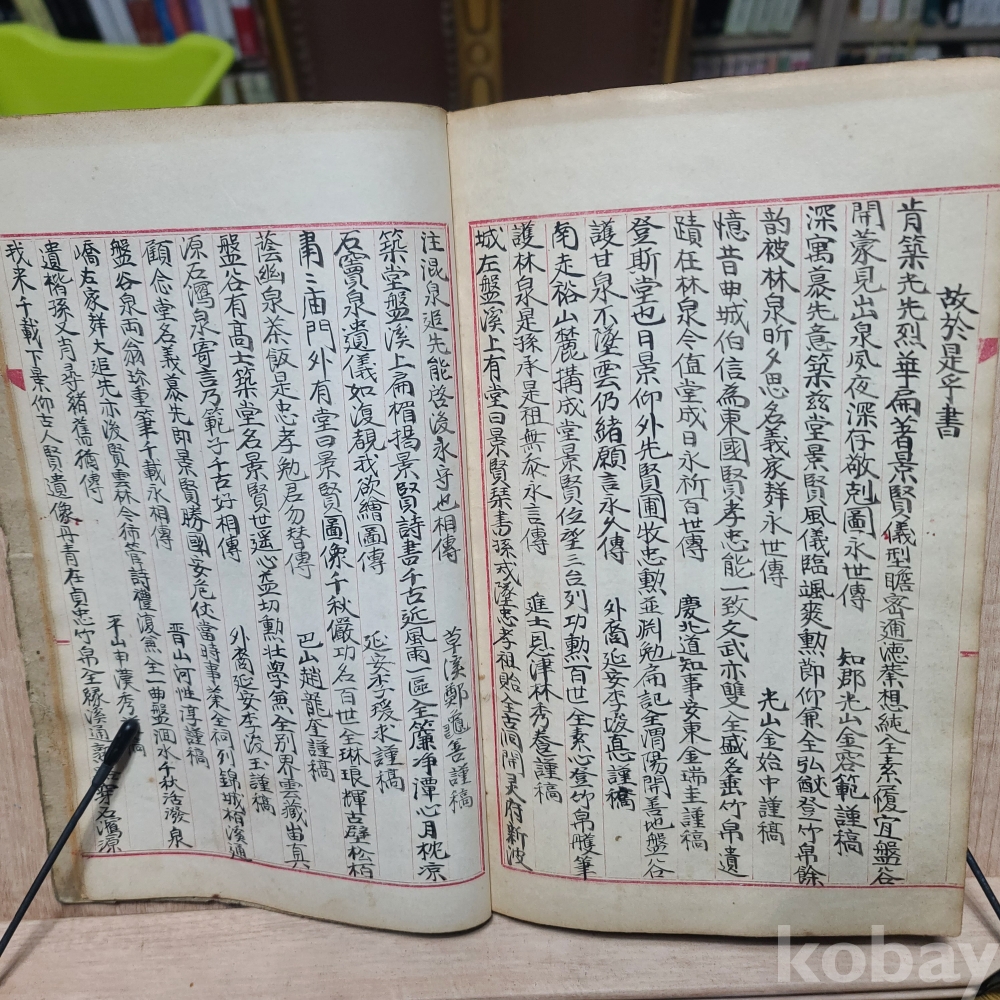 故於是乎書
肯築先先烈並華扁著景賢儀型瞻密邇德業想純全素履宜盤谷
開蒙見出泉夙夜深仔敬剋圖永世傳 知郡光山金容範謹稿
深寓慕先意築茲堂景賢風儀臨颯爽勳節仰兼全弘猷登竹帛餘
韵被林泉昕夕思名義家群永世傳 光山金始中謹稿
憶昔曲城伯信爲東國賢孝忠能一致文武亦雙全盛名垂竹帛遺
蹟在林泉今值堂成日永祈百世傳 慶北道知事安東金瑞圭謹稿
登斯堂也日景仰外先賢圃牧忠勳並 勉齋記全渭陽開善地盤谷
護甘泉不墜雲仍緒願言永久傳 外裔延安李 謹稿
南走裕山麓搆成堂景賢位 三台列功勳百世全素心登竹帛 筆
護林泉是孫承是祖無忝永言傳 進士恩津林秀 謹稿
城左盤溪上有堂曰景賢琴書孫 墜忠孝祖貽全古洞開 府新波
注混泉追先能啓後永守也相傳 草溪鄭 善謹稿
築堂盤溪上扁楣揭景賢詩書千古近風雨一區全簾净潭心月枕凉
石竇泉遺儀如復覩我欲繪圖傳 延安李瑗求謹稿
三庙門外有堂曰景賢圖像千秋儼功名百世全琳琅輝古壁松栢
蔭幽泉茶飯是忠孝勉君勿替傳 巴山趙龍奎謹稿
盤谷有高士築堂名景賢世遥心 切勳壯學無全别界雲藏岫真
源石瀉泉寄言乃範子千古好相傳 外裔延安李浚玉謹稿
顧念堂名義慕先即景賢勝國安危仗當時事業全祠列錦城柏溪通
盤谷泉両翁 筆千載永相傳 晋山河性淳謹稿
嶠左家群大追先亦後賢雲林今 昔詩禮復 全一曲盤洄水千秋活潑泉
遺楷孫又肯尋緒舊 傳 平山申漢秀
我来千載下景仰古人賢遺像丹青在貞忠竹帛全緣溪通 石濱源